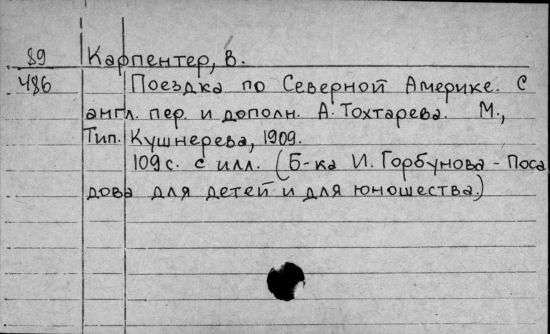 89 Карпентер, В.
486 Поездка по Северной Америке. С
англ. пер. и дополн. А. Тохтарева. М.,
Тип. Кушнерева, 1909.
109 с. с илл. (Б-ка И. Горбунова-Поса
дова для детей и для юношества.)